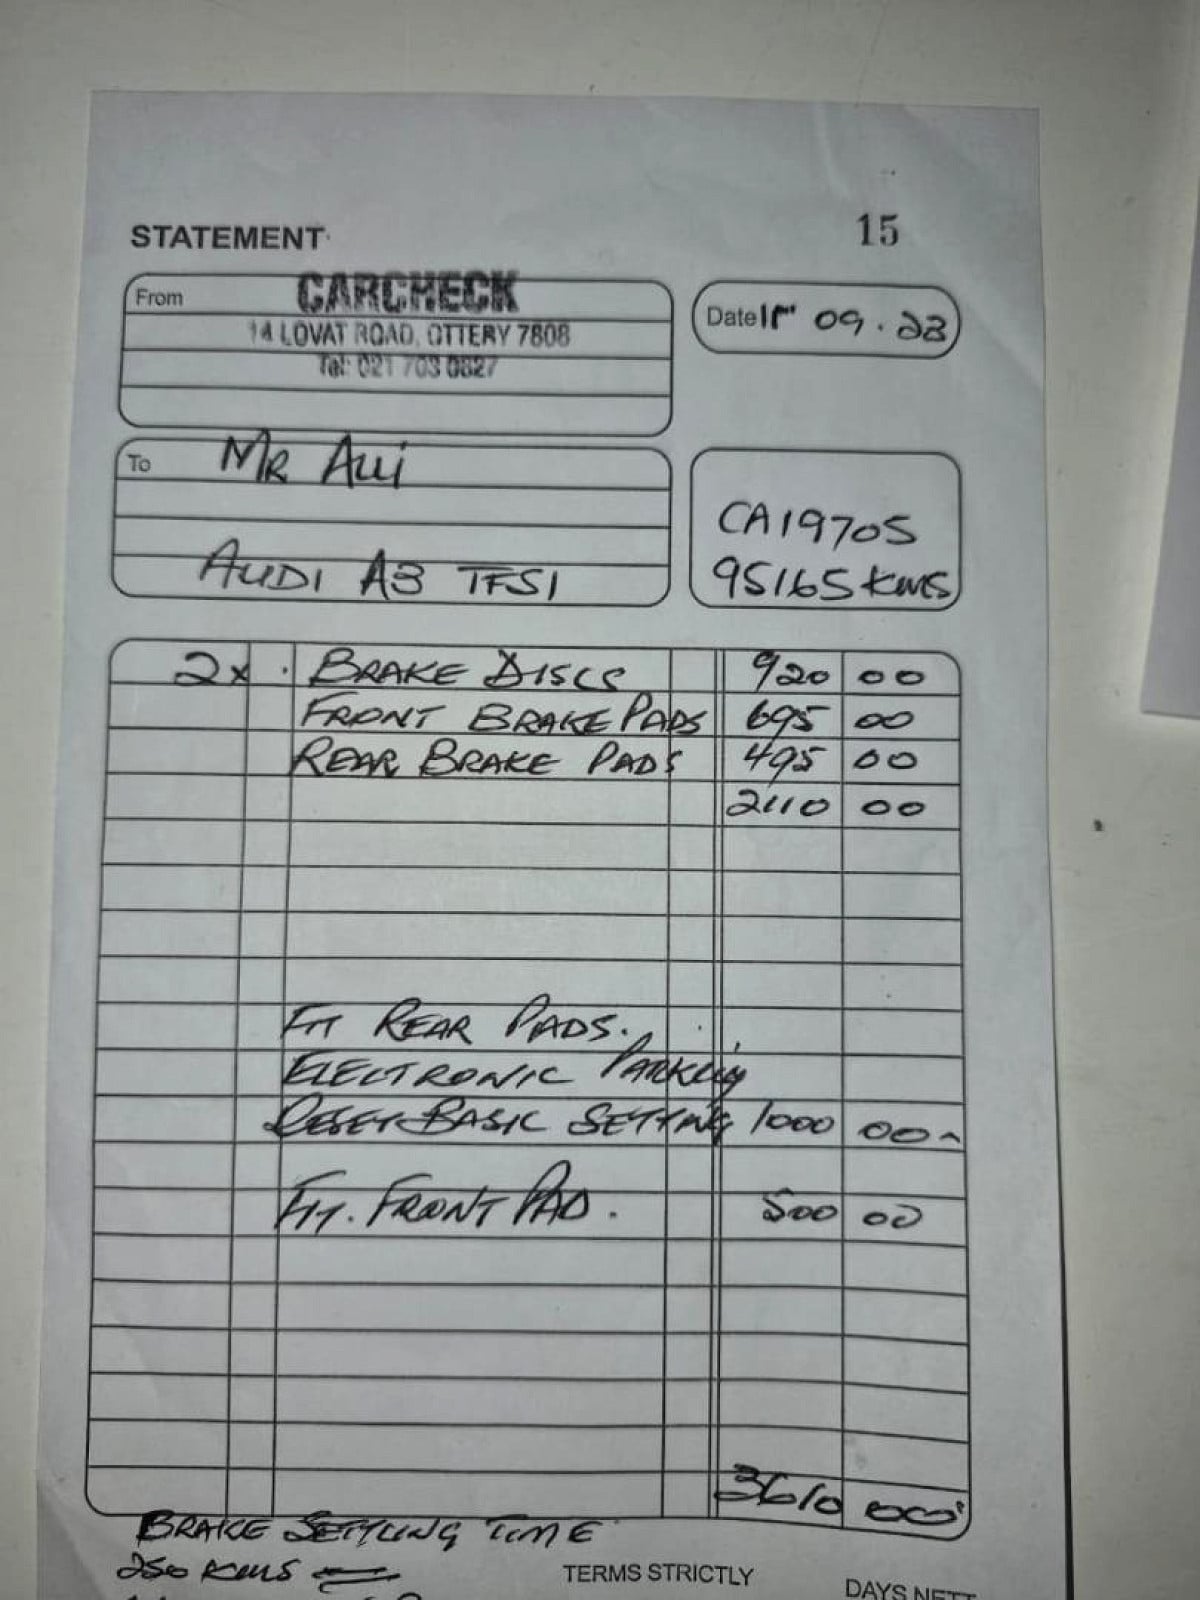 STATEMENT
15
From
CARCHECK
14 LOVAT ROAD, OTTERY 7808
Tel: 021 703 0827
Date 09.23
To MR Alli
AUDI A3 TFSI
CA19705
95165 KMS
2x BRAKE DISCS 920 00
FRONT BRAKE PADS 695 00
REAR BRAKE PADS 495 00
2110 00
FIT REAR PADS.
ELECTRONIC PARKING
RESET BASIC SETTING 1000 00
FIT. FRONT PAD. 500 00
3610 00
BRAKE SETTLING TIME
250 KMS
TERMS STRICTLY
DAYS NETT